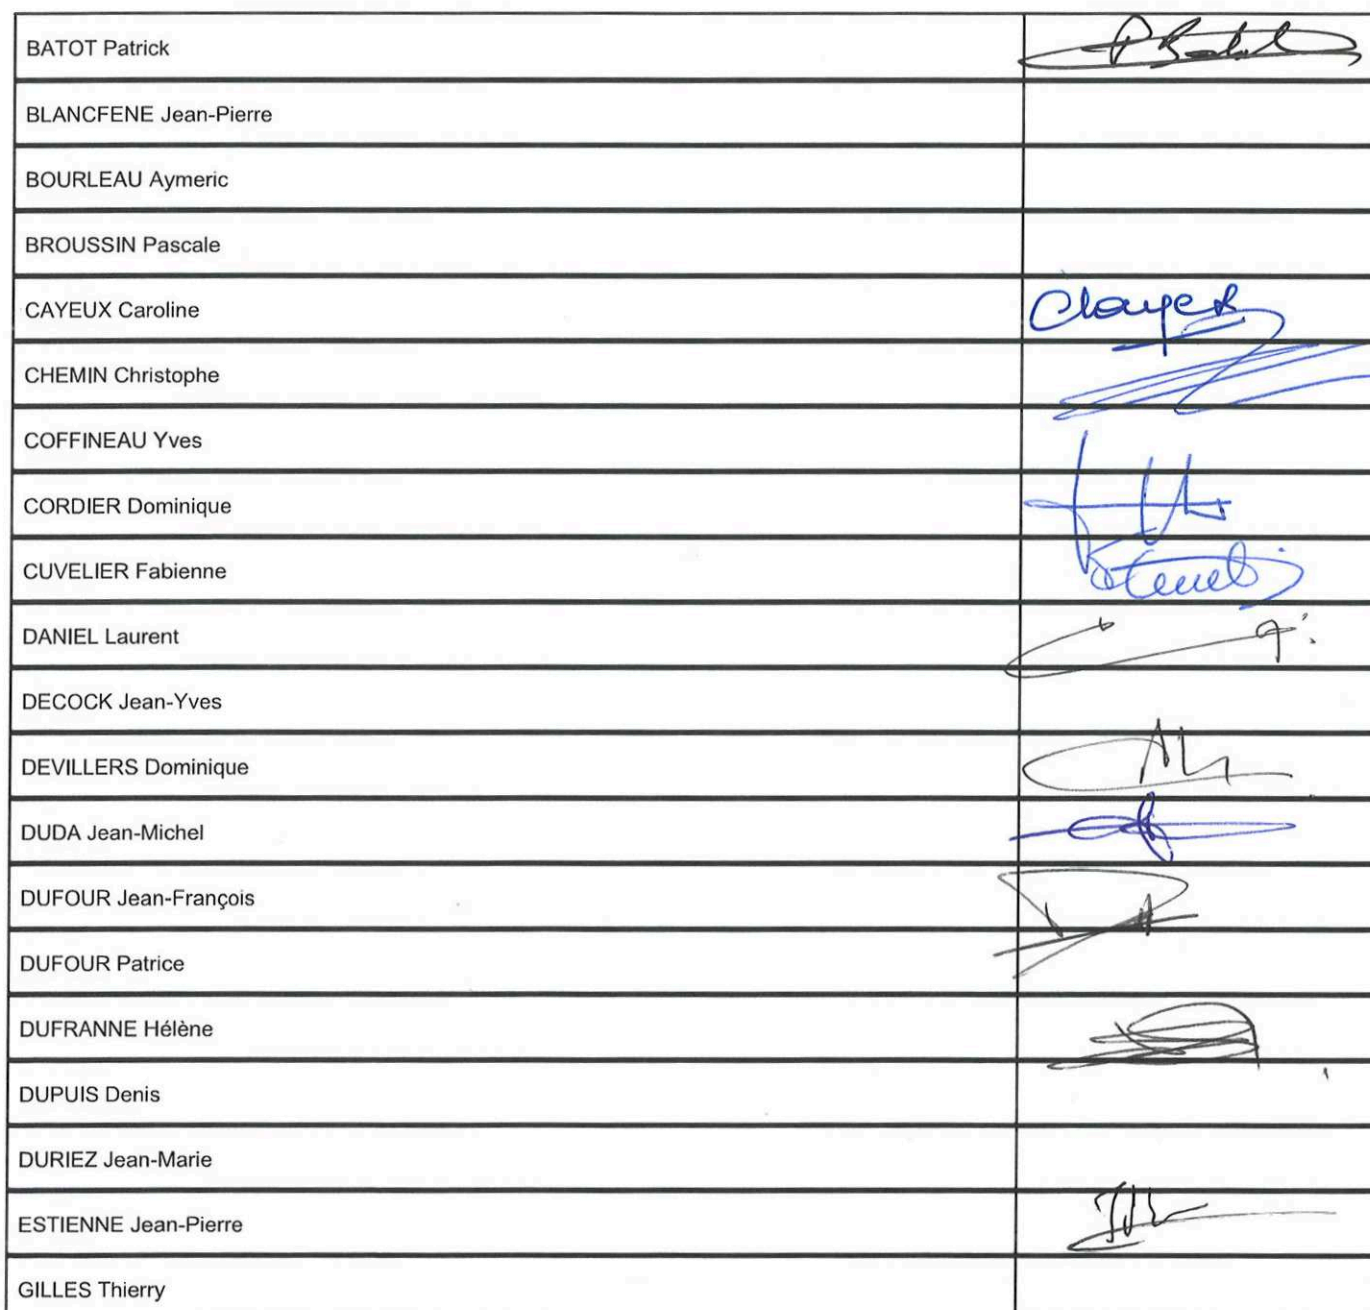 BATOT Patrick
BLANCFENE Jean-Pierre
BOURLEAU Aymeric
BROUSSIN Pascale
CAYEUX Caroline
CHEMIN Christophe
COFFINEAU Yves
CORDIER Dominique
CUVELIER Fabienne
DANIEL Laurent
DECOCK Jean-Yves
DEVILLERS Dominique
DUDA Jean-Michel
DUFOUR Jean-François
DUFOUR Patrice
DUFRANNE Hélène
DUPUIS Denis
DURIEZ Jean-Marie
ESTIENNE Jean-Pierre
GILLES Thierry